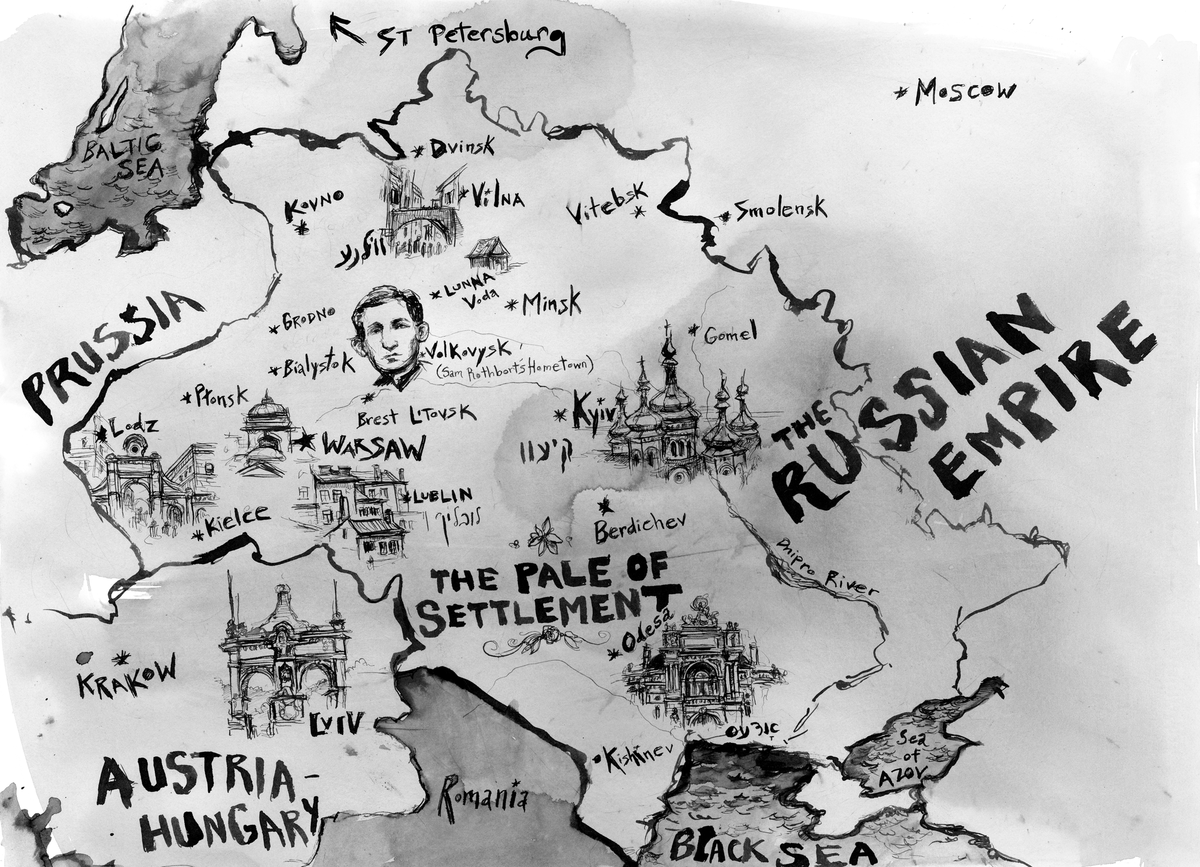 ST Petersburg
* Moscow
BALTIC
SEA
* Dvinsk
KOVNO
* VILNA
Vitebsk
* Smolensk
* LUNNA
Voda
* Minsk
* GRODNO
PRUSSIA
* Gomel
* Bialystok
Volkovysk
(Sam Rothbort's HomeTown)
* Płonsk
Brest LITOVSK
* Kyiv
קיעוו
THE
RUSSIAN
EMPIRE
* Lodz
* WARSAW
* LUBLIN
לובלין
* Kielce
Berdichev
Dnipro River
THE PALE OF
SETTLEMENT
* Odesa
KRAKOW
LVIV
* Kishinev
Sea
of
AZOV
AUSTRIA-
HUNGARY
Romania
BLACK SEA